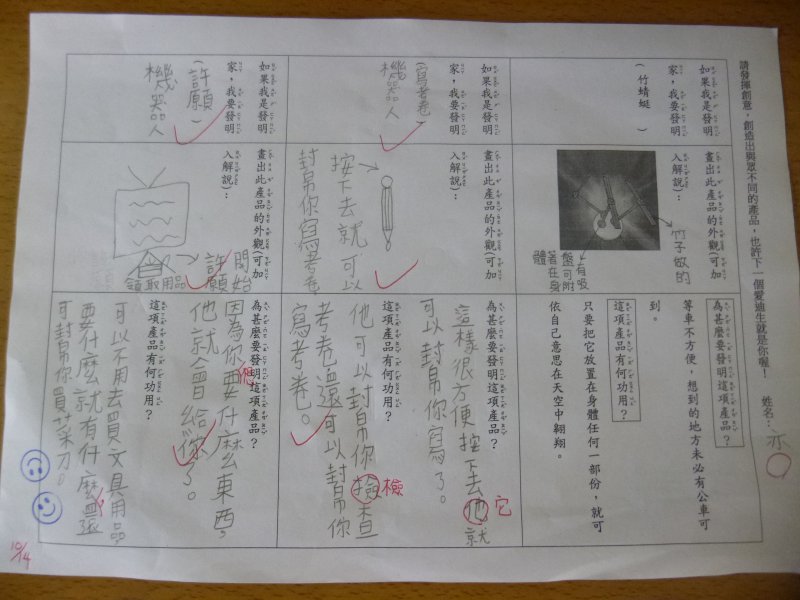 請發揮創意，創造出與眾不同的產品，也許下一個愛迪生就是你喔！
姓名：亦
如果我是發明
家，我要發明
（竹蜻蜓）
畫出此產品的外觀(可加
入解說)：
竹子做的
有吸
盤可附
著在身
體
為甚麼要發明這項產品？
等車不方便，想到的地方未必有公車可
到。
這項產品有何功用？
只要把它放置在身體任何一部份，就可
依自己意思在天空中翱翔。
如果我是發明
家，我要發明
（寫考卷）
機器人
畫出此產品的外觀(可加
入解說)：
按下去就可以
封幫你寫考卷
為甚麼要發明這項產品？
這樣很方便按下去他就
它
可以封幫你寫了。
這項產品有何功用？
他可以封幫你撿查
檢
考卷還可以封幫你
寫考卷。
如果我是發明
家，我要發明
（許願）
機器人
畫出此產品的外觀(可加
入解說)：
開始
許願
領取用品
為甚麼要發明這項產品？
因為你要什麼東西，
想
他就會給你了。
這項產品有何功用？
可以不用去買文具用品
要什麼就有什麼還
可封幫你買菜刀。
10/14